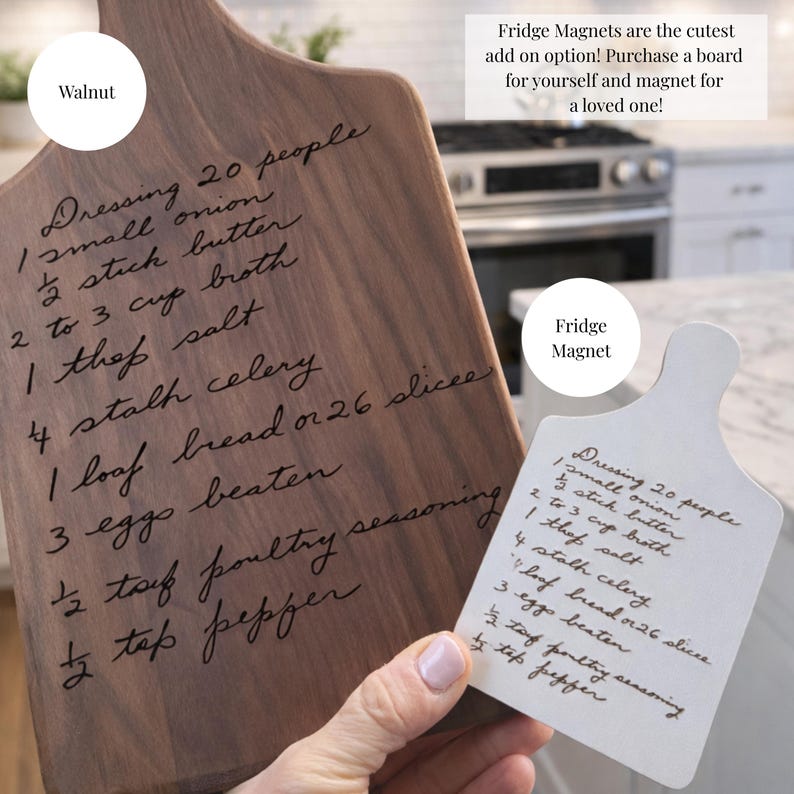 Fridge Magnets are the cutest
add on option! Purchase a board
for yourself and magnet for
a loved one!
Walnut
Dressing 20 people
1 small onion
1/2 stick butter
2 to 3 cup broth
1 thsp salt
4 stalk celery
1 loaf bread or 26 slices
3 eggs beaten
1/2 tsp poultry seasoning
1/2 tsp pepper
Fridge
Magnet
Dressing 20 people
1 small onion
1/2 stick butter
2 to 3 cup broth
1 thsp salt
4 stalk celery
1 loaf bread or 26 slices
3 eggs beaten
1/2 tsp poultry seasoning
1/2 tsp pepper